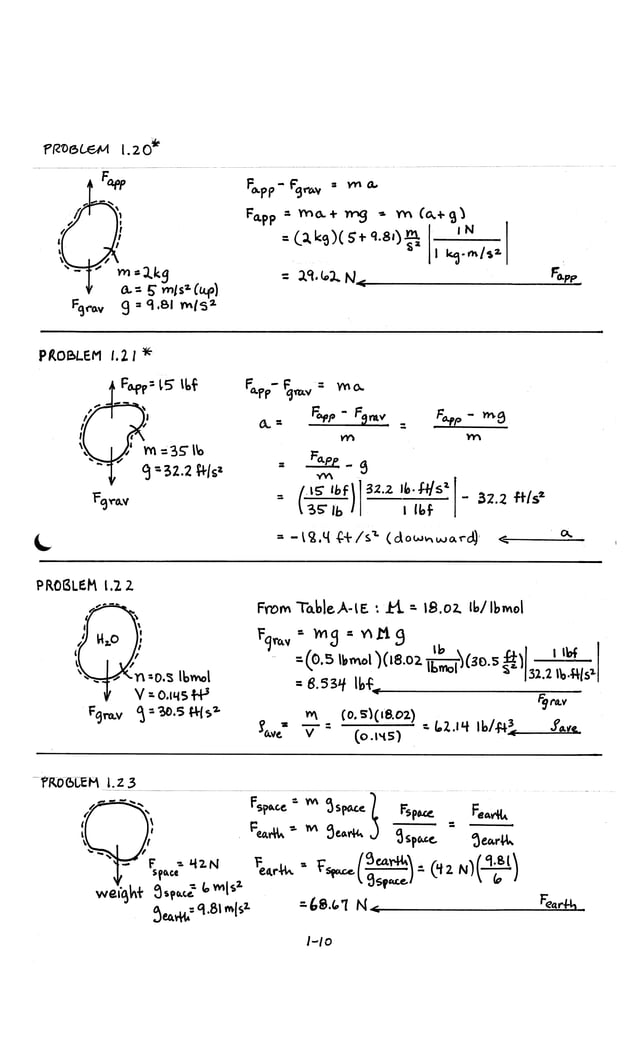 PROBLEM 1.20*
Fapp
m = 2kg
a = 5 m/s² (up)
Fgrav g = 9.81 m/s²
Fapp - Fgrav = ma
Fapp = ma + mg = m(a+g)
= (2kg)(5+9.81) m/s² | 1N / 1 kg·m/s² |
= 29.62 N ← Fapp
PROBLEM 1.21*
Fapp = 15 lbf
m = 35 lb
g = 32.2 ft/s²
Fgrav
Fapp - Fgrav = ma
a = (Fapp - Fgrav) / m = (Fapp - mg) / m
= Fapp / m - g
= (15 lbf / 35 lb) | 32.2 lb·ft/s² / 1 lbf | - 32.2 ft/s²
= -18.4 ft/s² (downward) ← a
PROBLEM 1.22
H₂O
n = 0.5 lbmol
V = 0.145 ft³
Fgrav g = 30.5 ft/s²
From Table A-1E : M = 18.02 lb/lbmol
Fgrav = mg = nMg
= (0.5 lbmol)(18.02 lb/lbmol)(30.5 ft/s²) | 1 lbf / 32.2 lb·ft/s² |
= 8.534 lbf ← Fgrav
ρave = m/V = (0.5)(18.02) / (0.145) = 62.14 lb/ft³ ← ρave
PROBLEM 1.23
Fspace = 42N
weight gspace = 6 m/s²
gearth = 9.81 m/s²
Fspace = m gspace
Fearth = m gearth } Fspace / gspace = Fearth / gearth
Fearth = Fspace (gearth / gspace) = (42 N)(9.81 / 6)
= 68.67 N ← Fearth
1-10